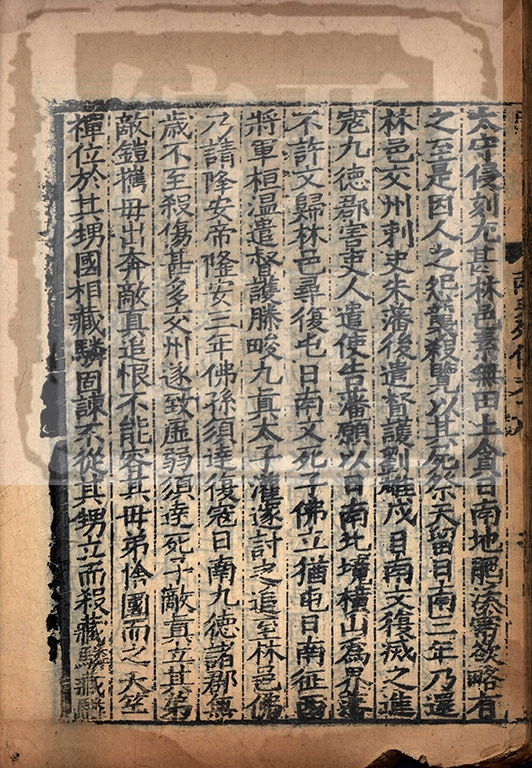 太守侵刻尤甚林邑素無田土貪日南地肥沃常欲略有
之至是因人之怨襲殺覽以其死祭天留日南三年乃還
林邑交州刺史朱藩後遣督護劉雄戍日南文復滅之進
寇九德郡害吏人遣使告藩願以日南北境橫山為界藩
不許文歸林邑尋復屯日南文死子佛立猶屯日南征西
將軍桓溫遣督護滕畯九真太子灌邃討之追至林邑佛
乃請降安帝隆安三年佛孫須達復寇日南九德諸郡無
歲不至殺傷甚多交州遂致虛弱須達死子敵真立其弟
敵鎧攜母出奔敵真追恨不能容其母弟捨國而之天竺
禪位於其甥國相藏驎固諫不從其甥立而殺藏驎藏驎